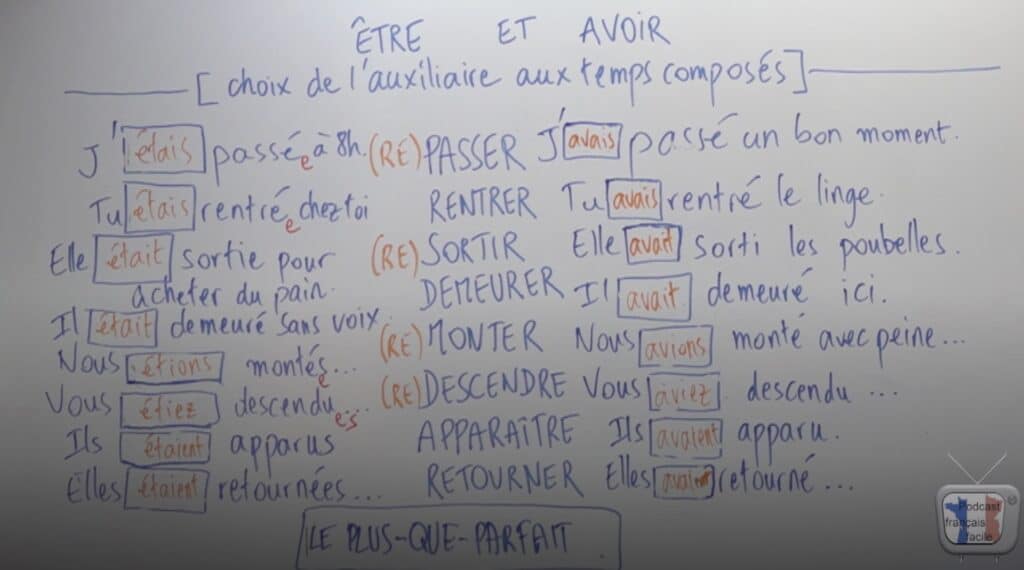 ÊTRE ET AVOIR
[choix de l'auxiliaire aux temps composés]
J'étais passée à 8h. (RE)PASSER J'avais passé un bon moment.
Tu étais rentrée chez toi RENTRER Tu avais rentré le linge.
Elle était sortie pour (RE)SORTIR Elle avait sorti les poubelles.
acheter du pain. DEMEURER Il avait demeuré ici.
Il était demeuré sans voix. (RE)MONTER Nous avions monté avec peine...
Nous étions montés e... (RE)DESCENDRE Vous aviez descendu...
Vous étiez descendu e s... APPARAÎTRE Ils avaient apparu.
Ils étaient apparus RETOURNER Elles avaient retourné...
Elles étaient retournées...
LE PLUS-QUE-PARFAIT.
Podcast
français
facile